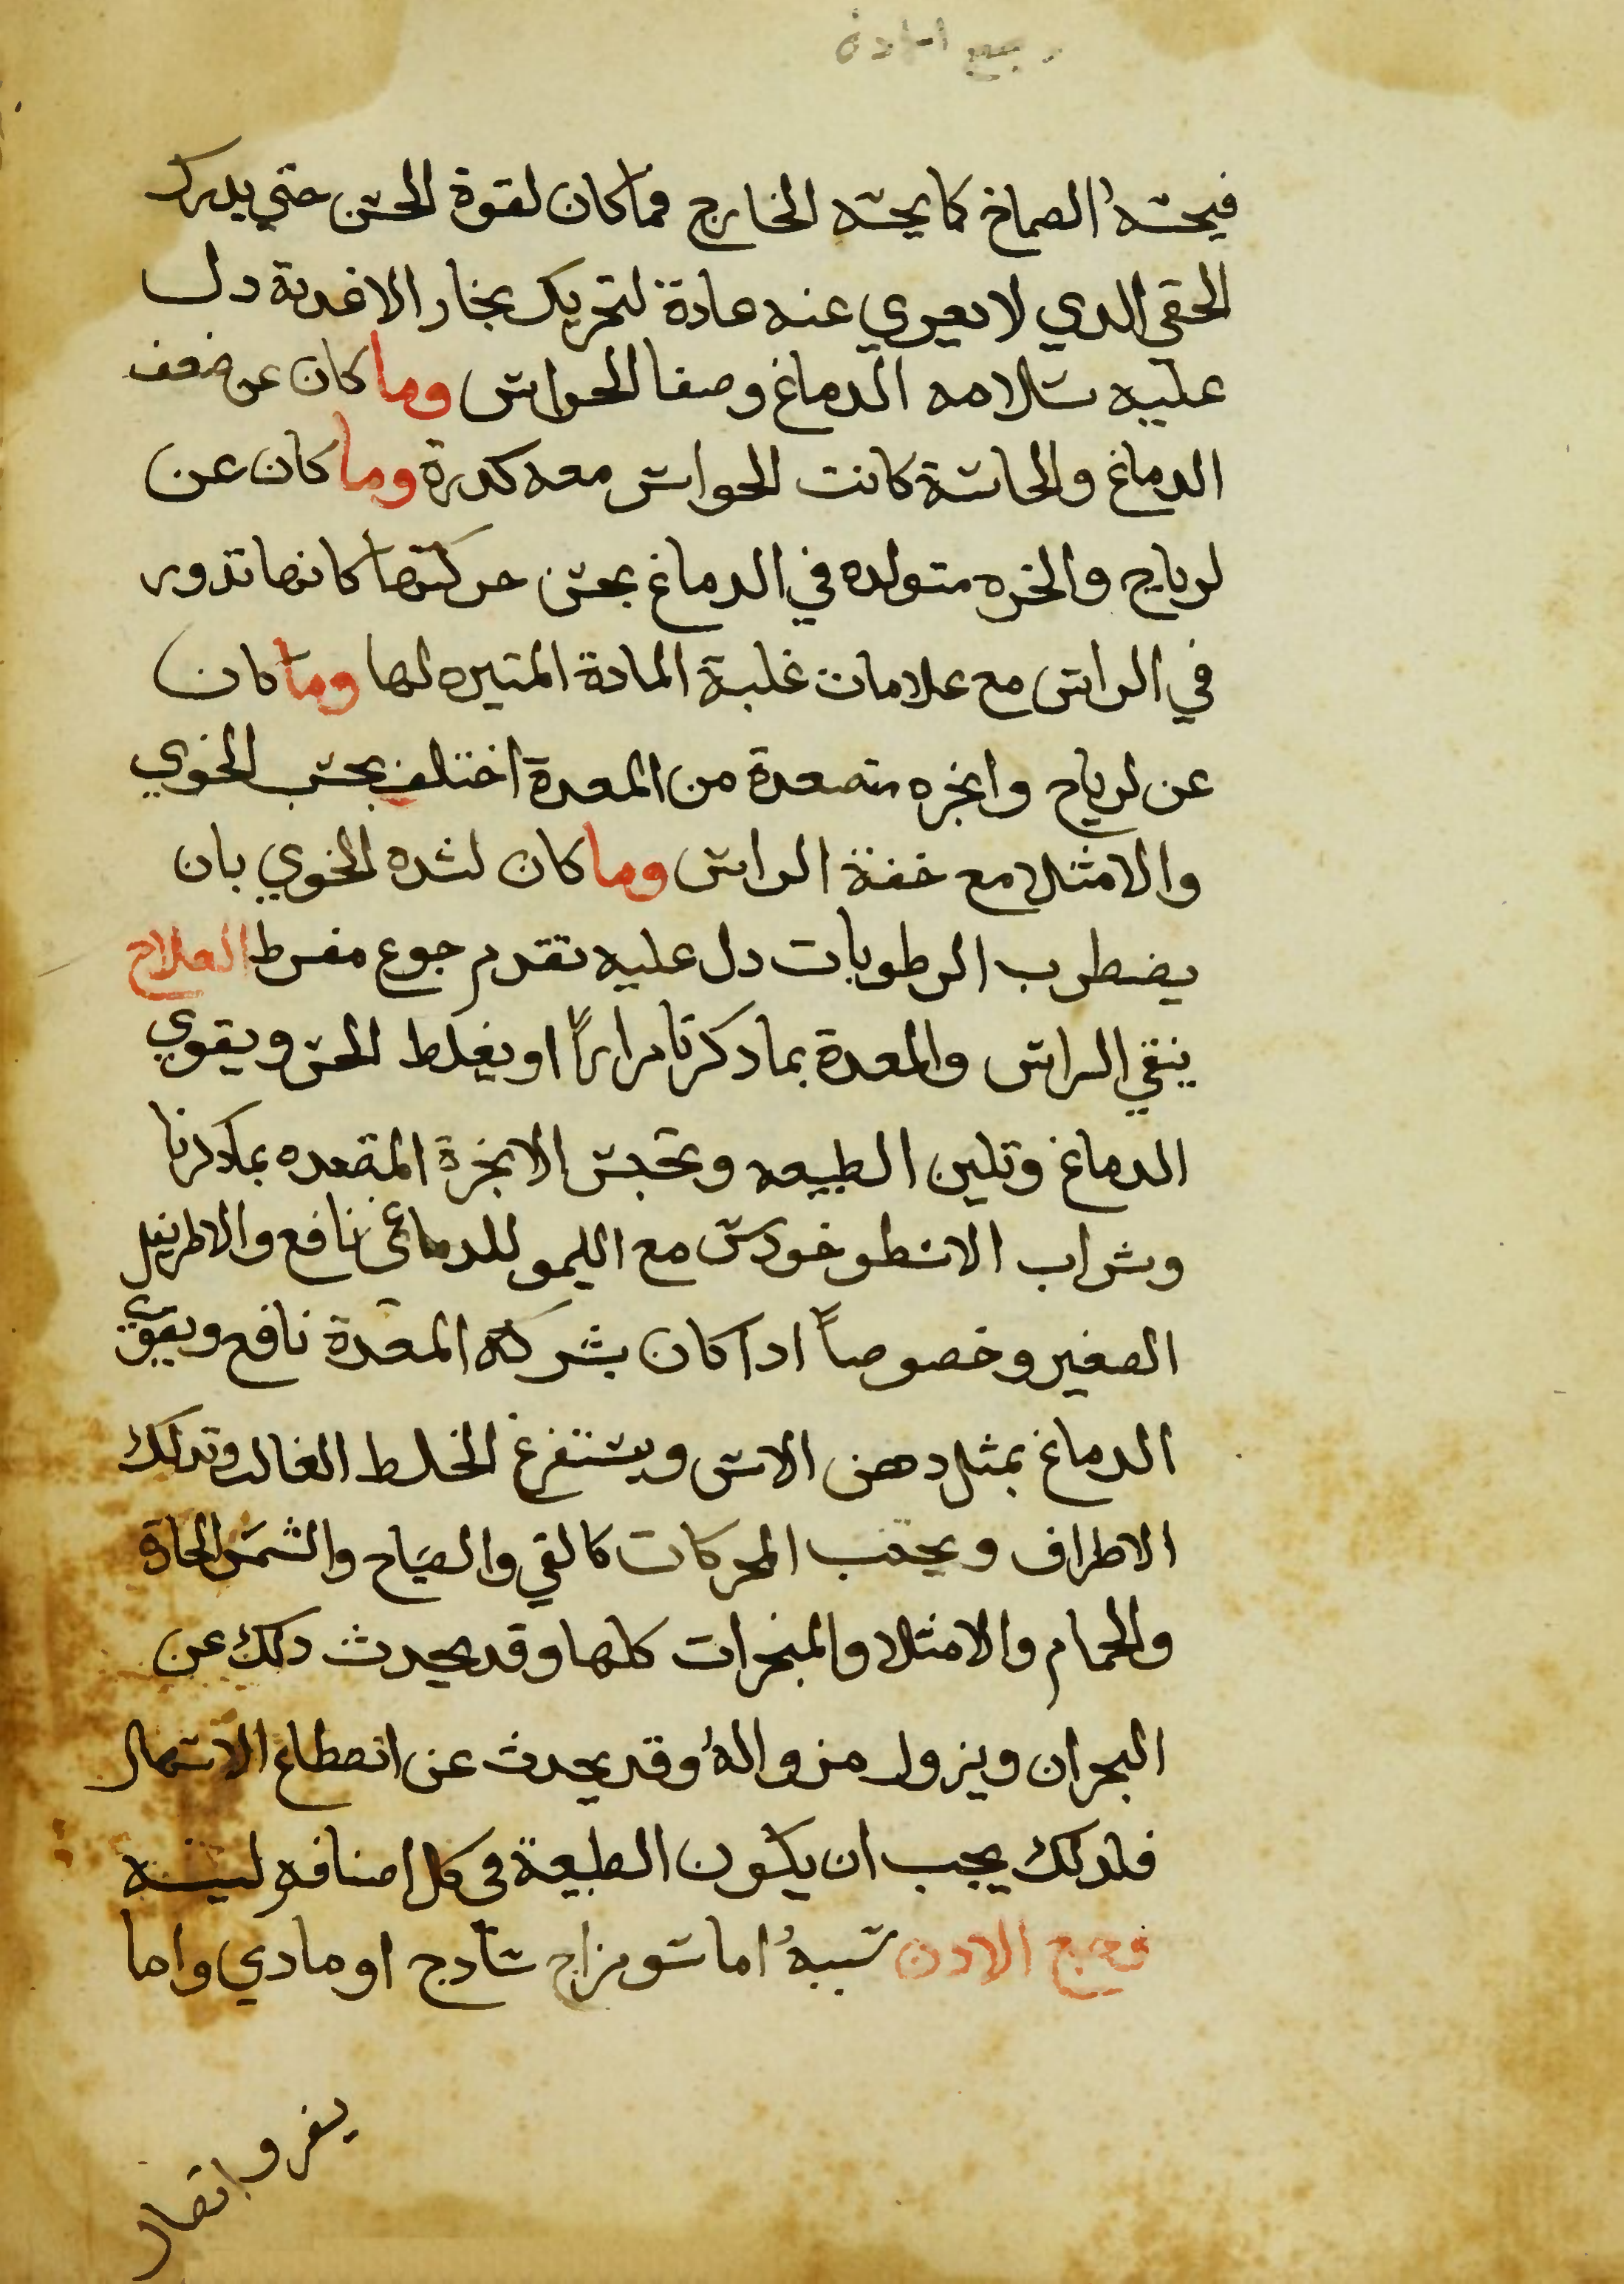 وجع الادن
فيحسه الصماخ كما يحسه الخارج فما كان لقوة الحس حتي يدرك
الخفي الدي لا يعري عنه عادة لتحريك بخار الاغدية دل
عليه سلامه الدماغ وصفا الحواس وما كان عن ضعف
الدماغ والحاسة كانت الحواس معه كدرة وما كان عن
لرياح والخره متولده في الدماغ بحس حركتها كانها تدور
في الراس مع علامات غلبة المادة المثيره لها وما كان
عن لرياح وابخره متصعدة من المعدة اختلف بحسب الخوي
والامتلا مع خفة الراس وما كان لشده الخوي بان
يضطرب الرطوبات دل عليه تقدم جوع مفرط العلاج
ينقي الراس والمعدة بما دكرنا مراراً او يغلط الحس ويقوي
الدماغ وتلين الطبيعه وتحبس الابخرة المتصعده بما دكرنا
وشراب الاسطوخودس مع الليمو للدماغي نافع والاطريفل
الصغير وخصوصاً ادا كان بشركة المعدة نافع ويقوي
الدماغ بمثل دهن الاس ويستفرغ الخلط الغالب وتدلك
الاطراف ويجتنب المحركات كالقي والصياح والشمس الحارة
والحمام والامتلا والمبخرات كلها وقد يحدث دلك عن
البحران ويزول بزواله وقد يحدث عن انقطاع الاسهال
فلدلك يجب ان يكون الطبيعة في كل اصنافه لينه
وجع الادن سببه اما سو مزاج سادج او مادي واما
تفرق اتصال